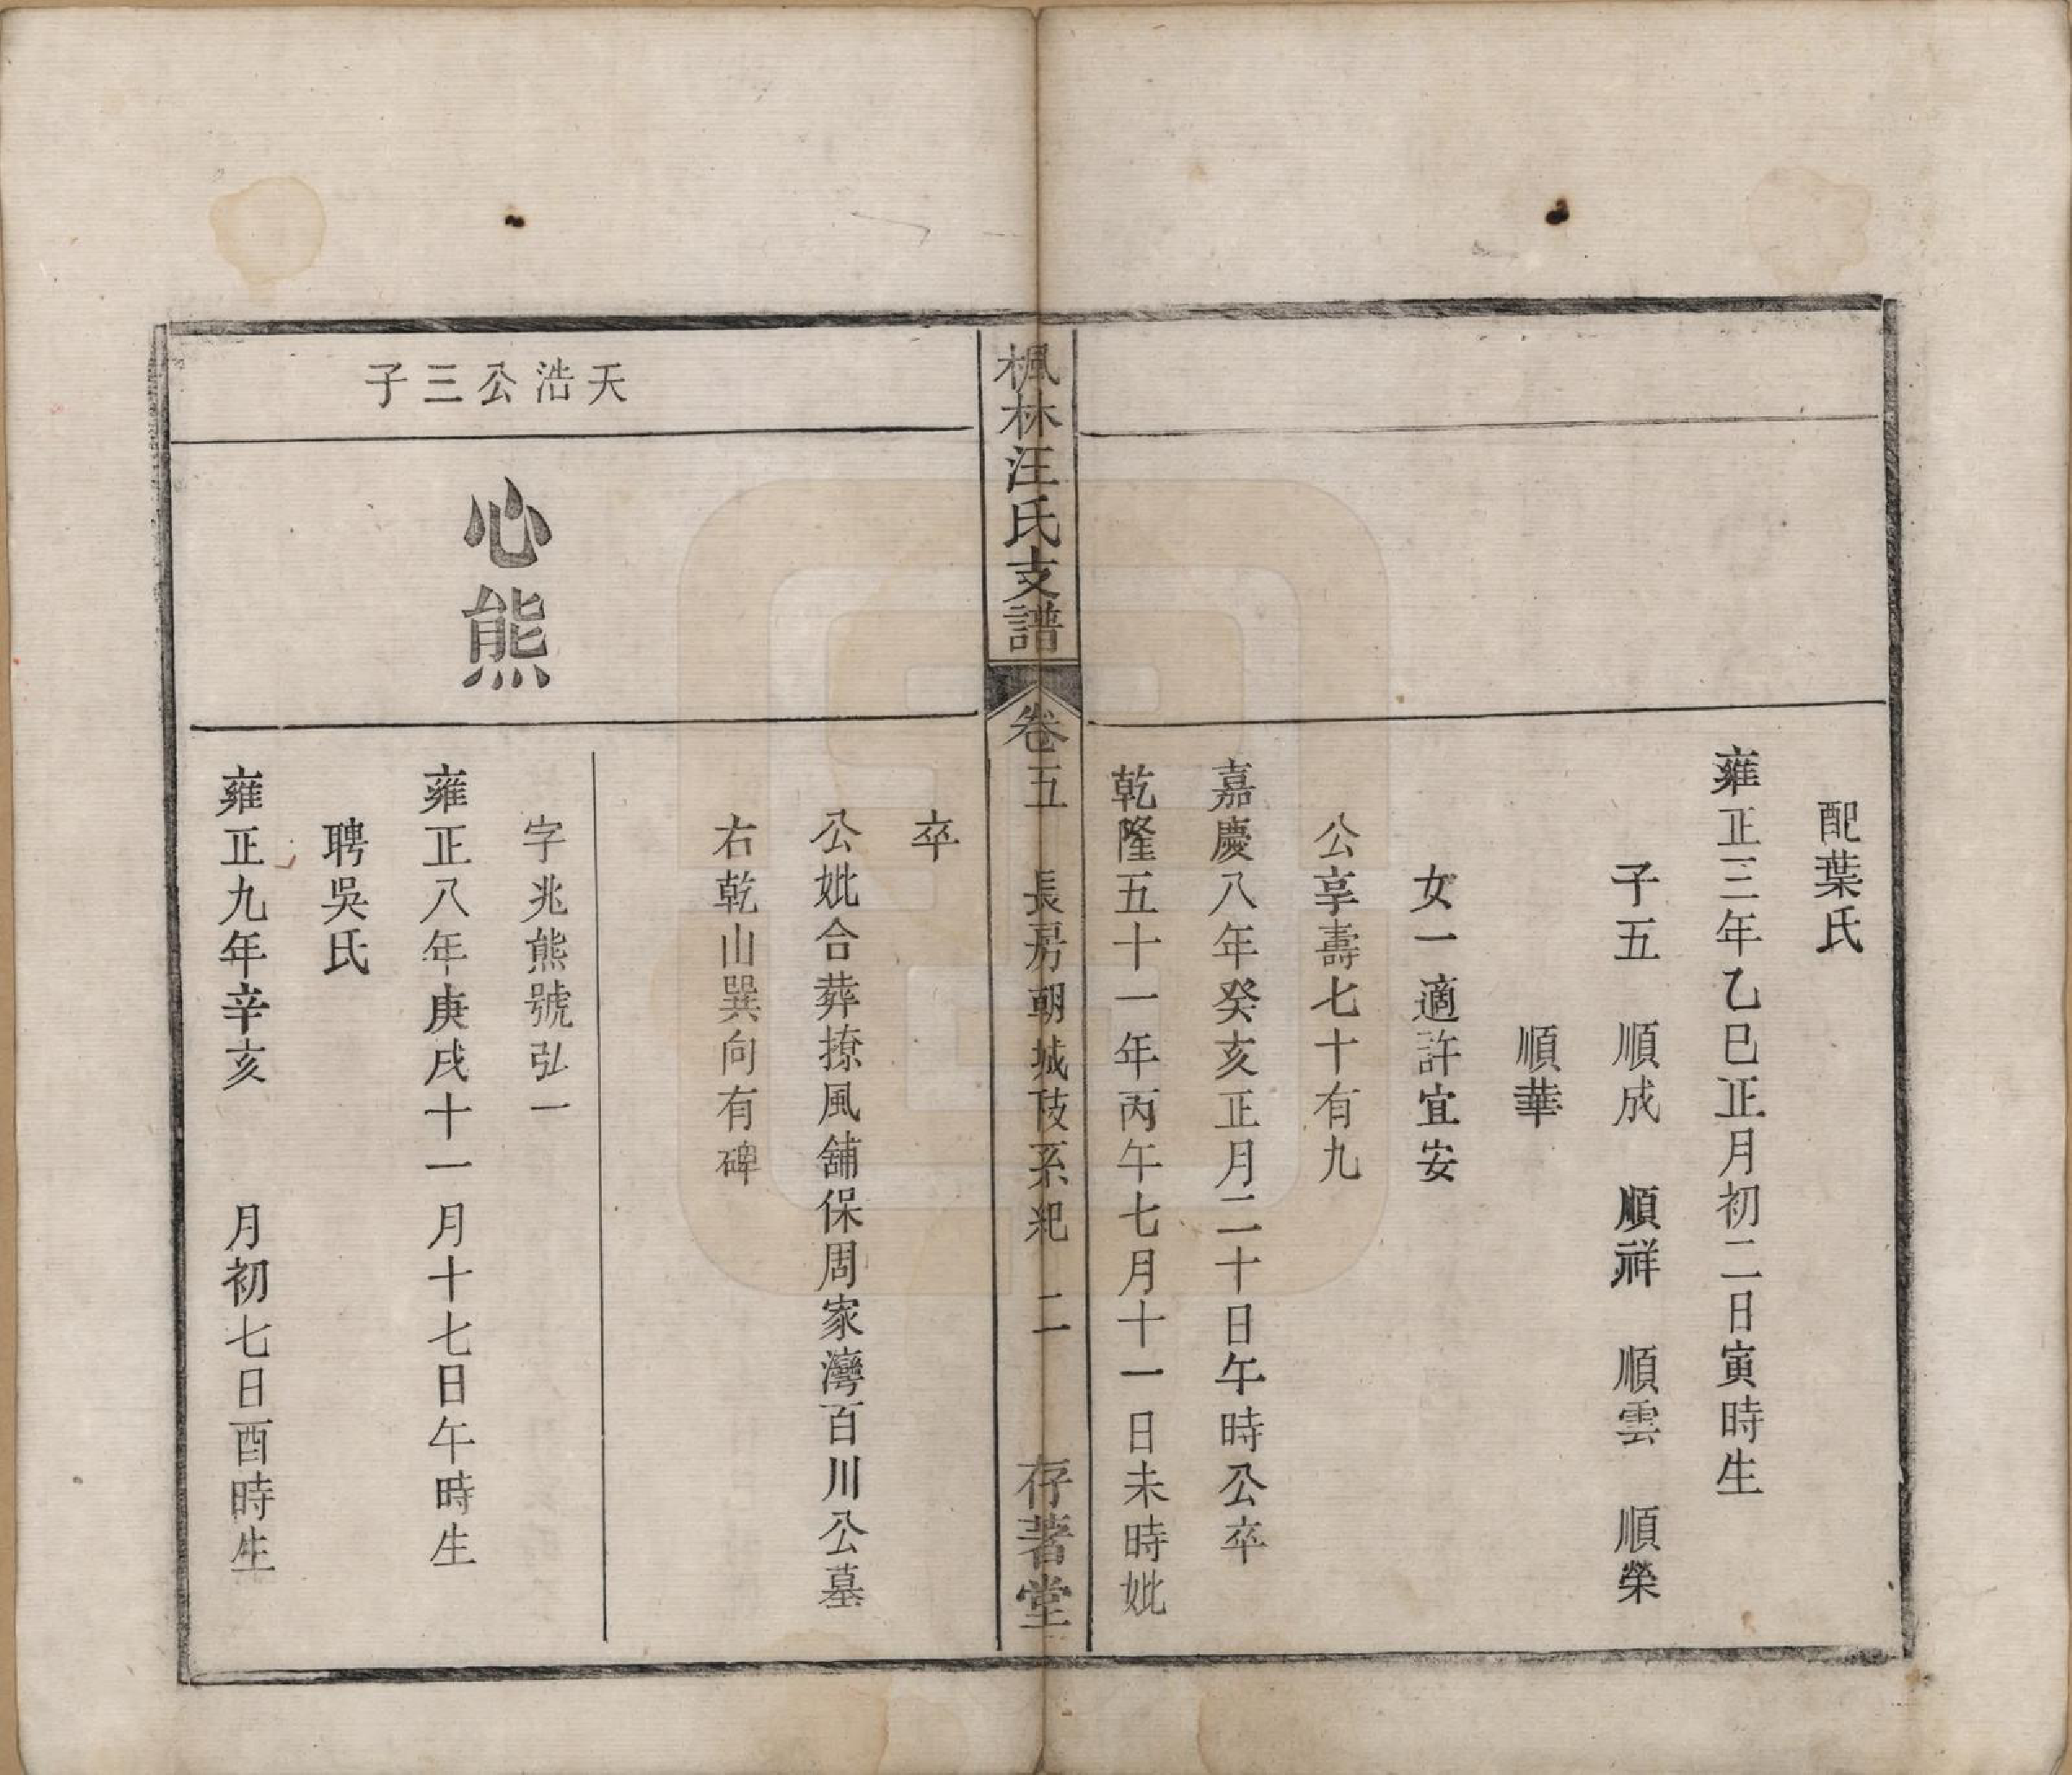 配葉氏
雍正三年乙巳正月初二日寅時生
子五　順成　順祥　順雲　順榮
順華
女一適許宜安
公享壽七十有九
嘉慶八年癸亥正月二十日午時公卒
乾隆五十一年丙午七月十一日未時妣
楓林汪氏支譜　卷五　長房朝城公支系紀　二　存著堂
卒
公妣合葬撩風舖保周家灣百川公墓
右乾山巽向有碑
天浩公三子
心熊
字兆熊號弘一
雍正八年庚戌十一月十七日午時生
聘吳氏
雍正九年辛亥　月初七日酉時生